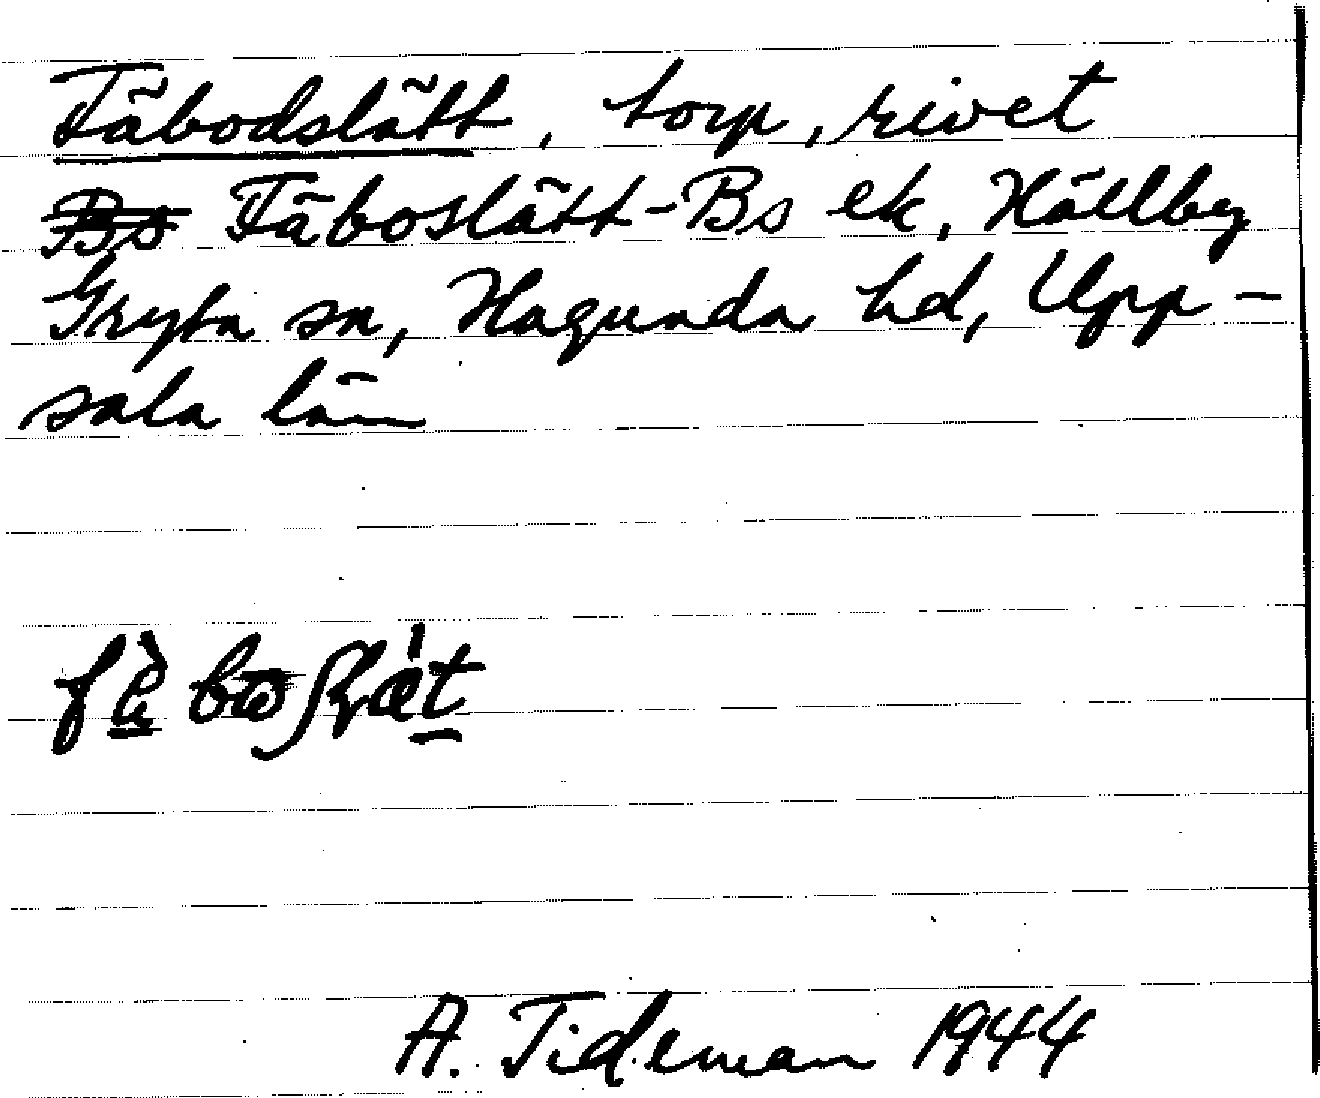 Fäbodslätt, torp, rivet
Bs Fäboslätt-Bs ek, Hällby
Gryta sn, Hagunda hd, Upp-
sala län
A. Tideman 1944